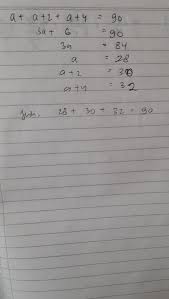 a + a+2 + a+4 = 90
3a + 6 = 90
3a = 84
a = 28
a+2 = 30
a+4 = 32
Jadi, 28 + 30 + 32 = 90